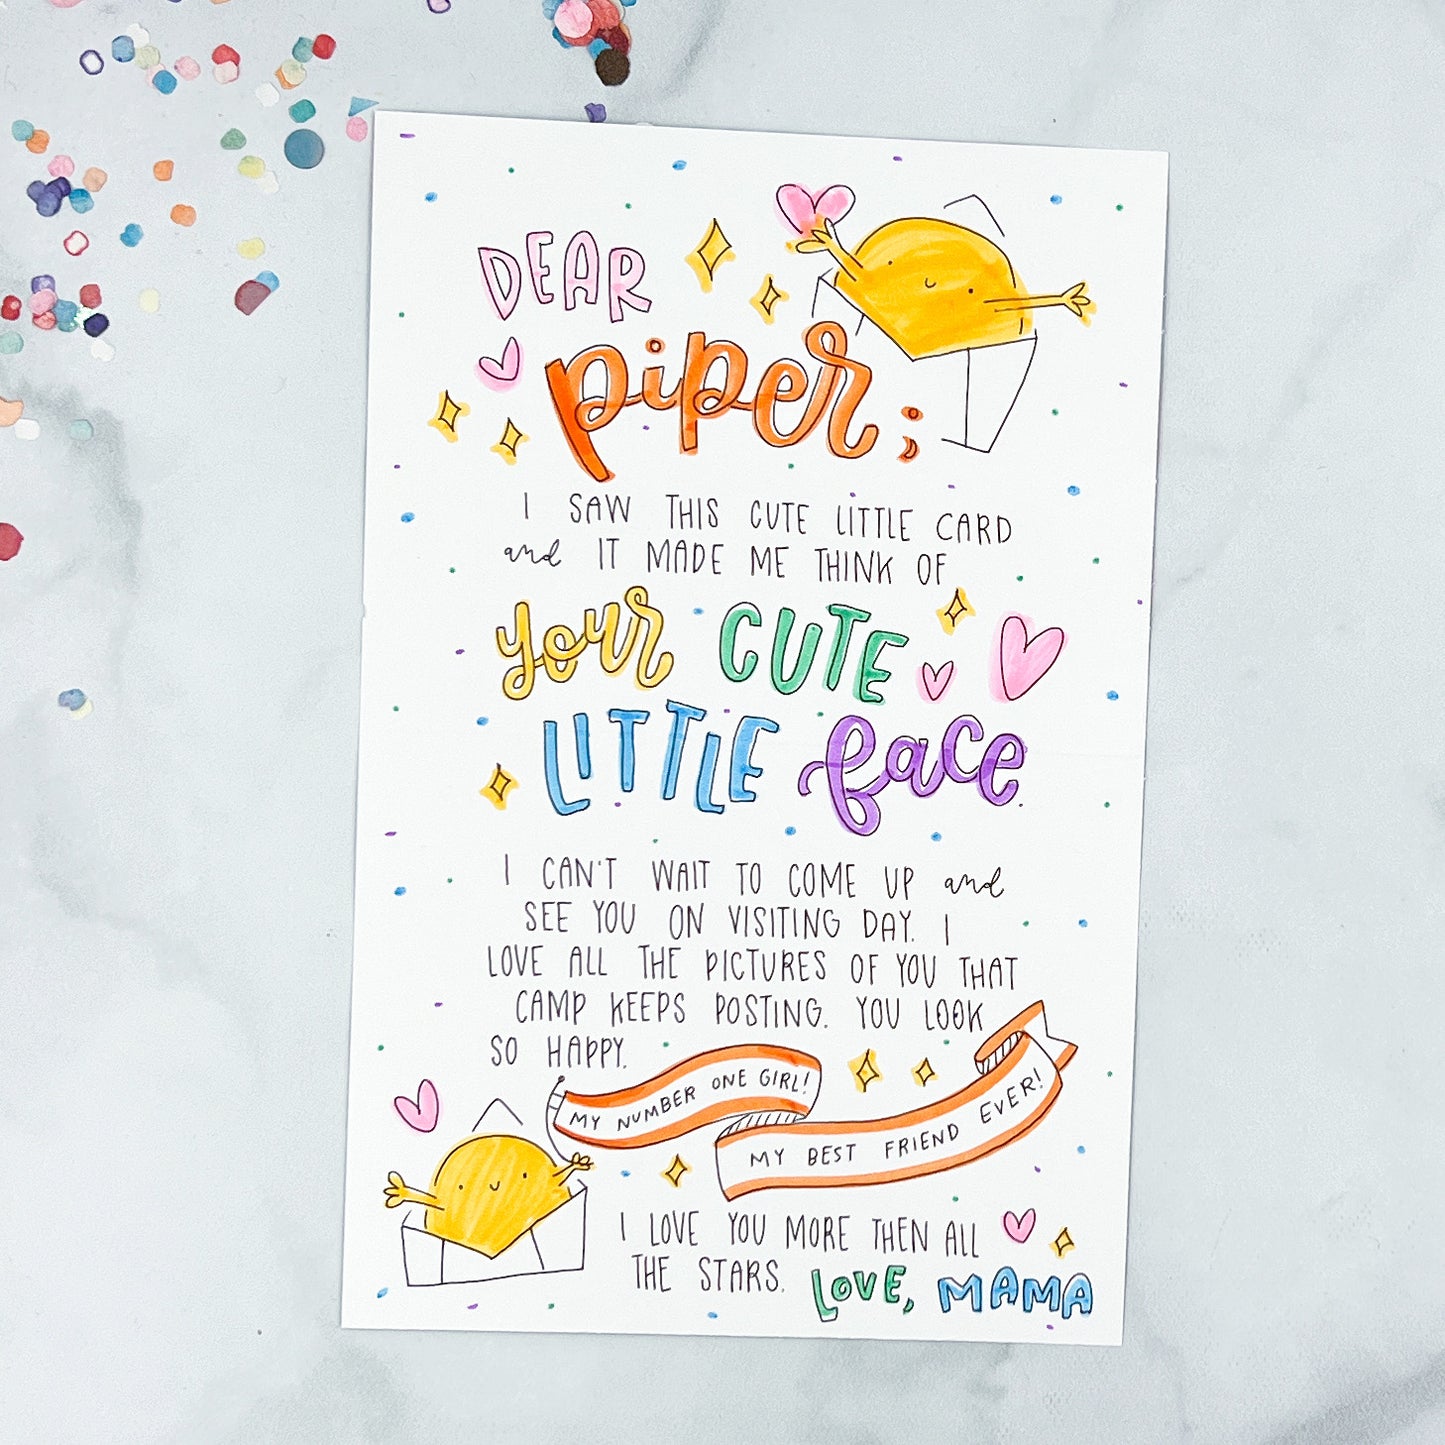 DEAR
piper;
I SAW THIS CUTE LITTLE CARD
and IT MADE ME THINK OF
your CUTE
LITTLE face.
I CAN'T WAIT TO COME UP and
SEE YOU ON VISITING DAY. I
LOVE ALL THE PICTURES OF YOU THAT
CAMP KEEPS POSTING. YOU LOOK
SO HAPPY.
MY NUMBER ONE GIRL!
MY BEST FRIEND EVER!
I LOVE YOU MORE THEN ALL
THE STARS. LOVE, MAMA